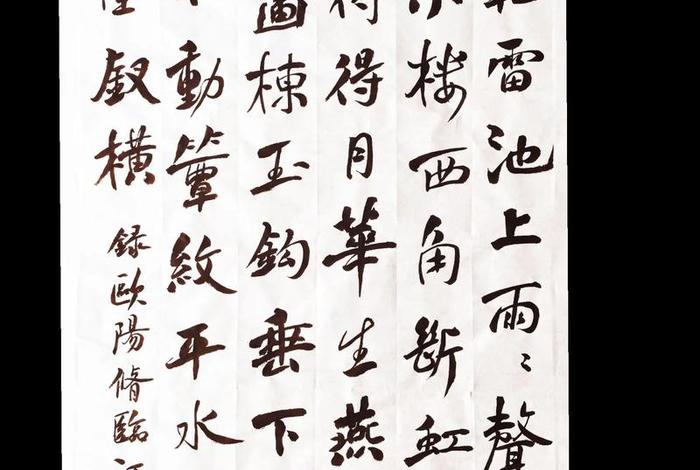 雷池上雨〻聲
楼西角斷虹
得月華生燕
棟玉鈎垂下
動簟紋平水
釵橫
錄歐陽脩臨